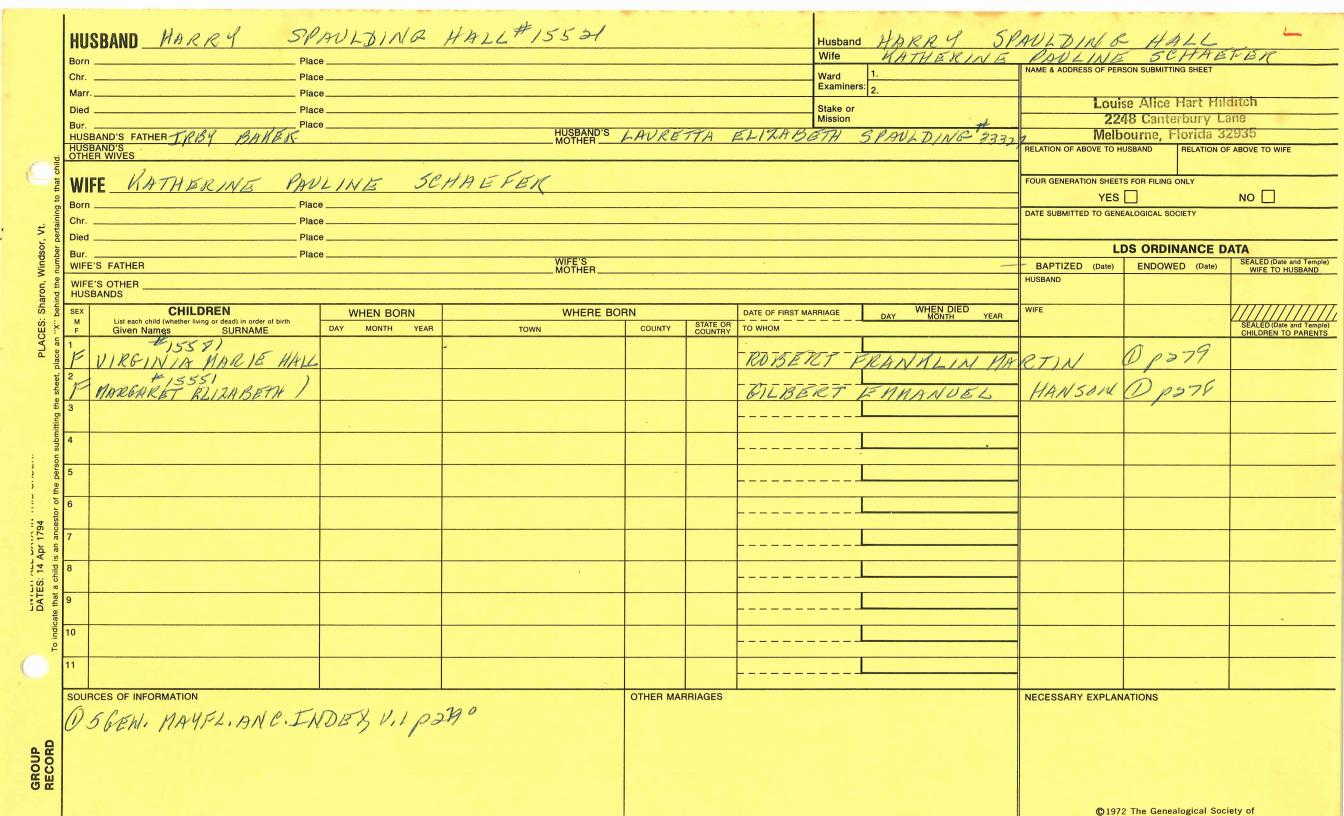 HUSBAND HARRY SPAULDING HALL #15521
Born Place
Chr. Place
Marr. Place
Died Place
Bur. Place
HUSBAND'S FATHER IRBY BAKER HUSBAND'S MOTHER LAURETTA ELIZABETH SPAULDING #
HUSBAND'S OTHER WIVES
Husband HARRY SPAULDING HALL
Wife KATHERINE PAULINE SCHAEFER
Ward Examiners: 1.
2.
Stake or Mission
NAME & ADDRESS OF PERSON SUBMITTING SHEET
Louise Alice Hart Hilditch
2248 Canterbury Lane
Melbourne, Florida 32935
RELATION OF ABOVE TO HUSBAND RELATION OF ABOVE TO WIFE
FOUR GENERATION SHEETS FOR FILING ONLY
YES NO
DATE SUBMITTED TO GENEALOGICAL SOCIETY
WIFE KATHERINE PAULINE SCHAEFER
Born Place
Chr. Place
Died Place
Bur. Place
WIFE'S FATHER WIFE'S MOTHER
WIFE'S OTHER HUSBANDS
LDS ORDINANCE DATA
BAPTIZED (Date) ENDOWED (Date) SEALED (Date and Temple) WIFE TO HUSBAND
HUSBAND
WIFE
SEALED (Date and Temple) CHILDREN TO PARENTS
SEX M F
CHILDREN
List each child (whether living or dead) in order of birth
Given Names SURNAME
WHEN BORN
DAY MONTH YEAR
WHERE BORN
TOWN COUNTY STATE OR COUNTRY
DATE OF FIRST MARRIAGE
TO WHOM
WHEN DIED
DAY MONTH YEAR
1 #15581
F VIRGINIA MARIE HALL ROBERT FRANKLIN MARTIN ① p279
2 #15551
F MARGARET ELIZABETH ) GILBERT EMMANUEL HANSON ① p278
3
4
5
6
7
8
9
10
11
SOURCES OF INFORMATION
① 5 GEN. MAYFL. ANC. INDEX, V.1
OTHER MARRIAGES
NECESSARY EXPLANATIONS
©1972 The Genealogical Society of
PLACES: Sharon, Windsor, Vt.
DATES: 14 Apr 1794
To indicate that a child is an ancestor of the person submitting the sheet, place an "X" behind the number pertaining to that child.
GROUP
RECORD